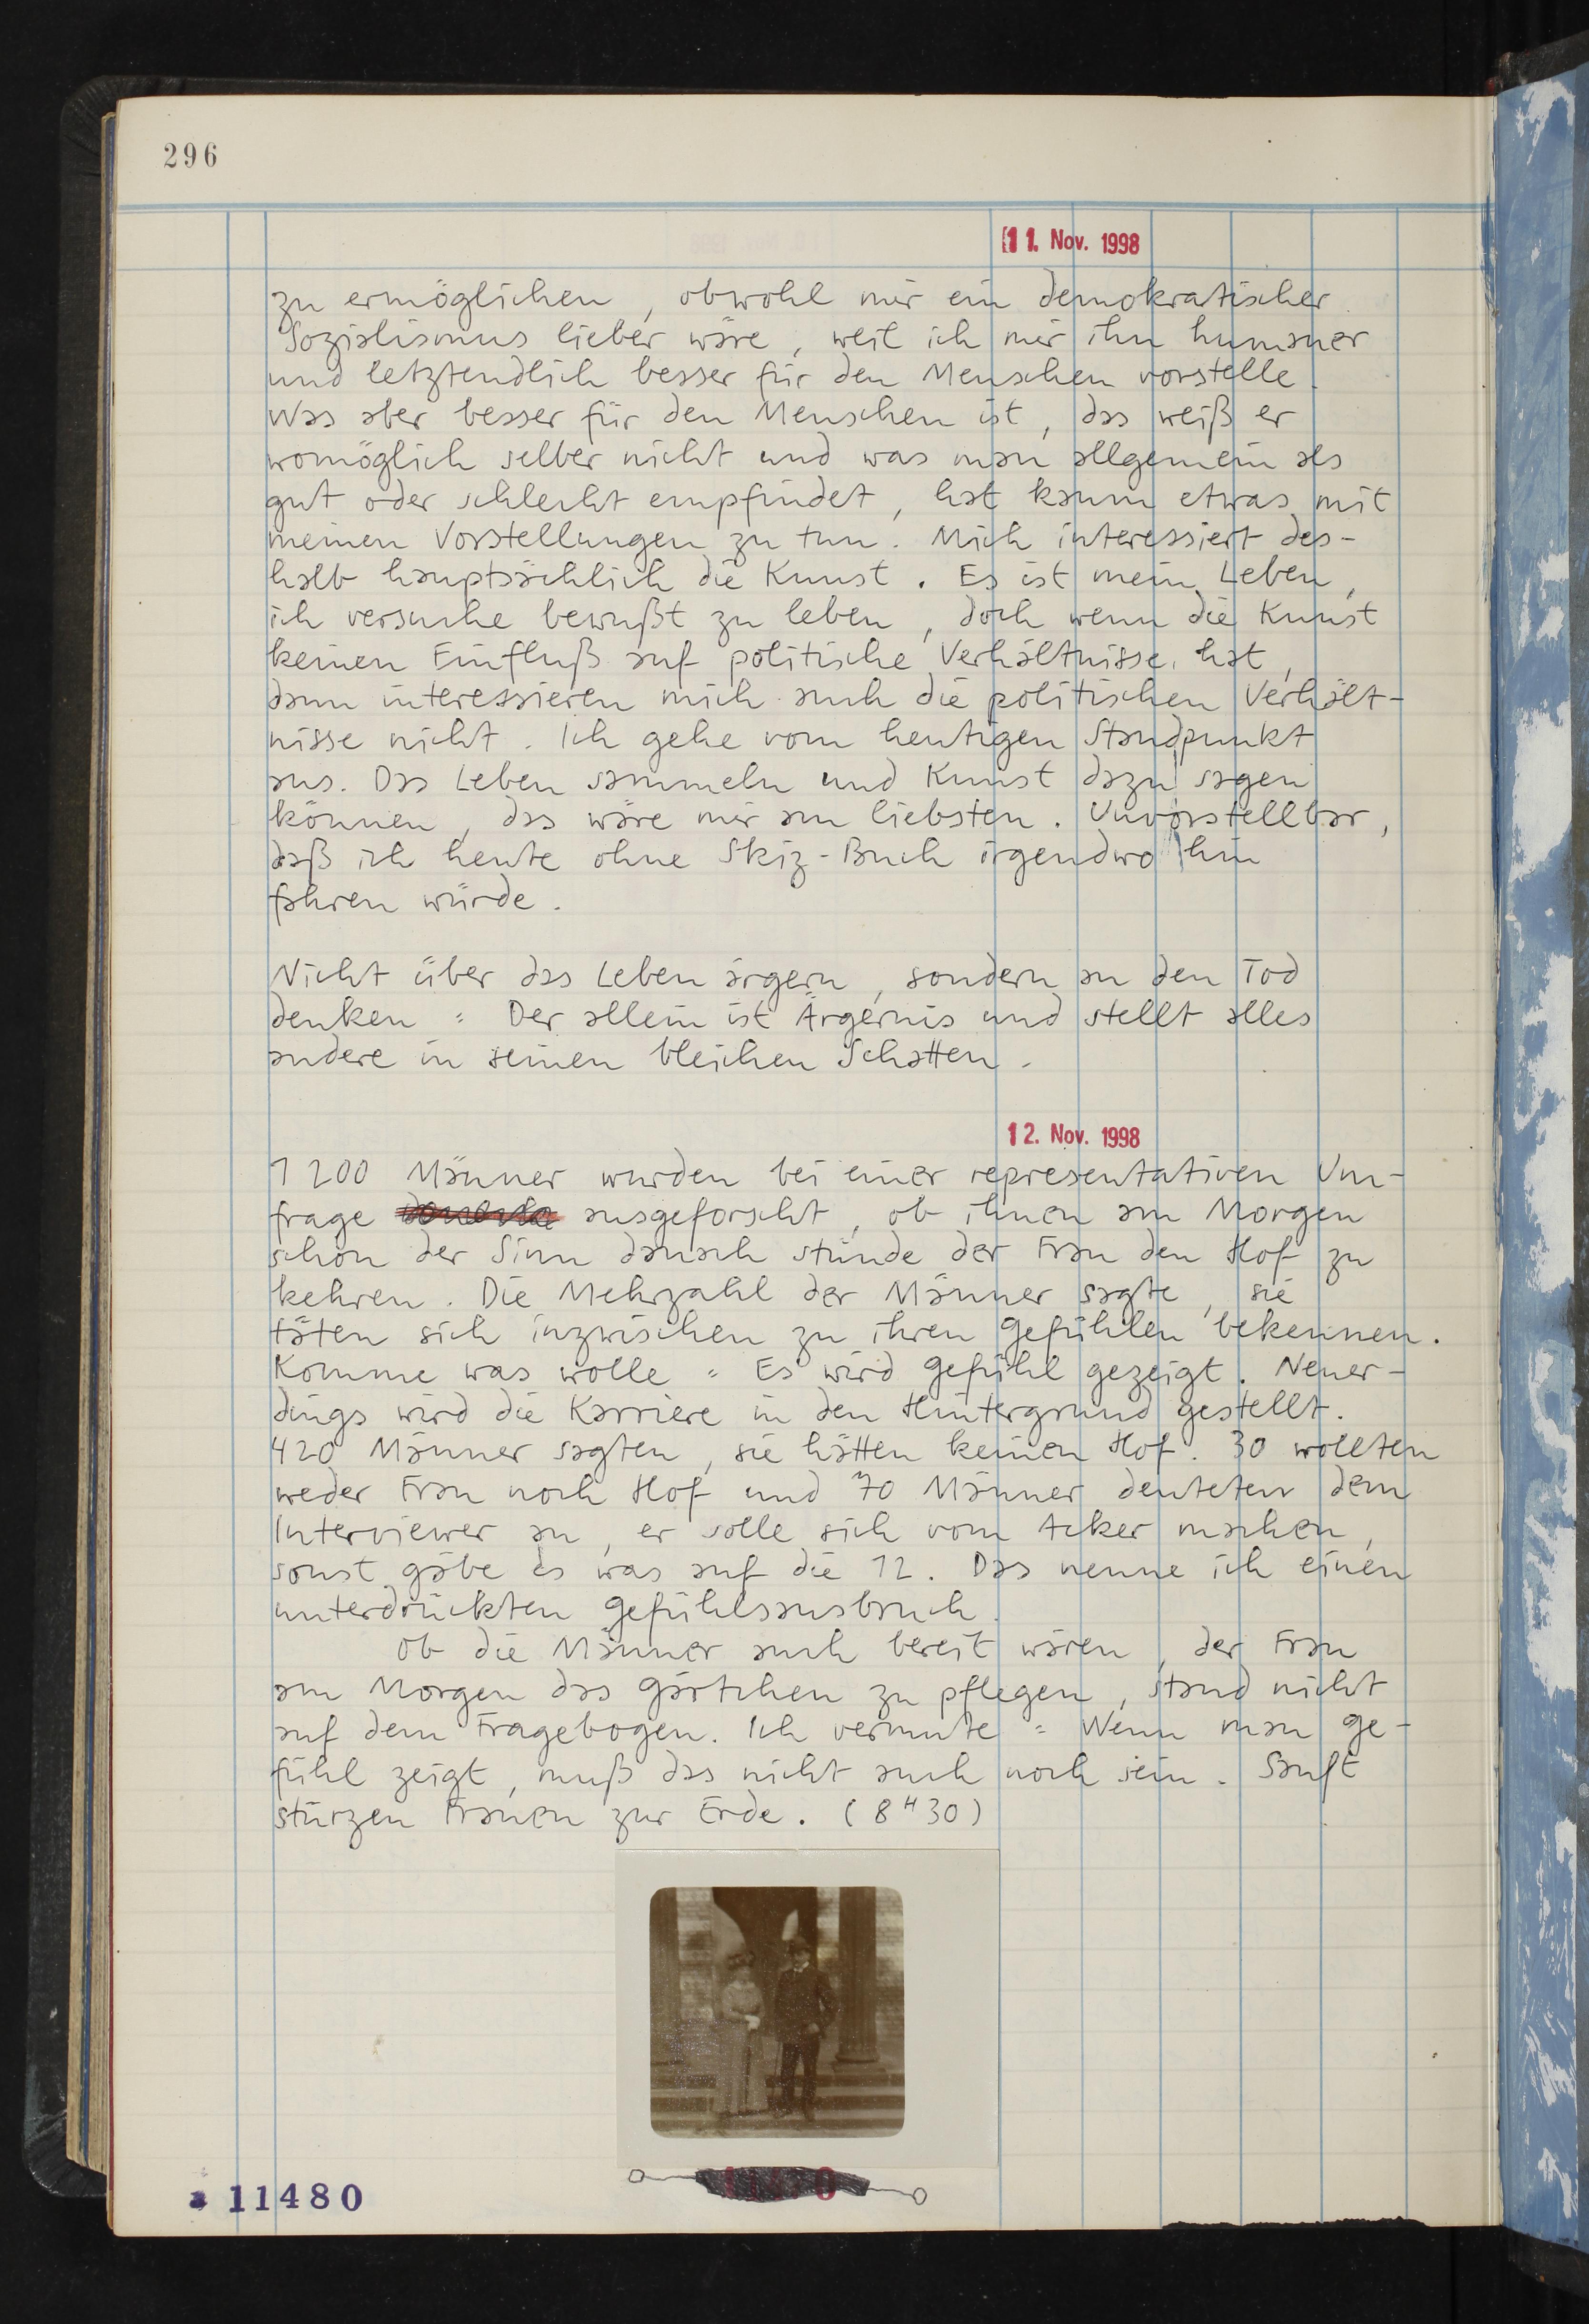 296
11. Nov. 1998
zu ermöglichen, obwohl mir ein demokratischer
Sozialismus lieber wäre, weil ich mir ihn humaner
und letztendlich besser für den Menschen vorstelle.
Was aber besser für den Menschen ist, das weiß er
womöglich selber nicht und was man allgemein als
gut oder schlecht empfindet, hat kaum etwas mit
meinen Vorstellungen zu tun. Mich interessiert des-
halb hauptsächlich die Kunst. Es ist mein Leben,
ich versuche bewußt zu leben, doch wenn die Kunst
keinen Einfluß auf politische Verhältnisse hat,
dann interessieren mich auch die politischen Verhält-
nisse nicht. Ich gehe vom heutigen Standpunkt
aus. Das Leben sammeln und Kunst dazu sagen
können, das wäre mir am liebsten. Unvorstellbar,
daß ich heute ohne Skiz-Buch irgendwo hin
fahren würde.
Nicht über das Leben ärgern, sondern an den Tod
denken: Der allein ist Ärgernis und stellt alles
andere in seinen bleichen Schatten.
12. Nov. 1998
1200 Männer wurden bei einer representativen Um-
frage ausgeforscht, ob ihnen am Morgen
schon der Sinn danach stünde der Frau den Hof zu
kehren. Die Mehrzahl der Männer sagte, sie
täten sich inzwischen zu ihren Gefühlen bekennen.
Komme was wolle: Es wird Gefühl gezeigt. Neuer-
dings wird die Karriere in den Hintergrund gestellt.
420 Männer sagten, sie hätten keinen Hof. 30 wollten
weder Frau noch Hof und 70 Männer deuteten dem
Interviewer an, er solle sich vom Acker machen,
sonst gäbe es was auf die 12. Das nenne ich einen
unterdrückten Gefühlsausbruch.
Ob die Männer auch bereit wären, der Frau
am Morgen das Gärtchen zu pflegen, stand nicht
auf dem Fragebogen. Ich vermute: Wenn man Ge-
fühl zeigt, muß das nicht auch noch sein. Sanft
stürzen Frauen zur Erde. (8H30)
11480